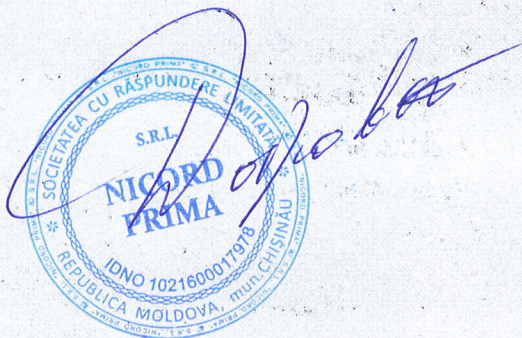 SOCIETATEA CU RĂSPUNDERE LIMITATĂ
S.R.L.
NICORD
PRIMA
IDNO 1021600017978
REPUBLICA MOLDOVA, mun.CHIȘINĂU